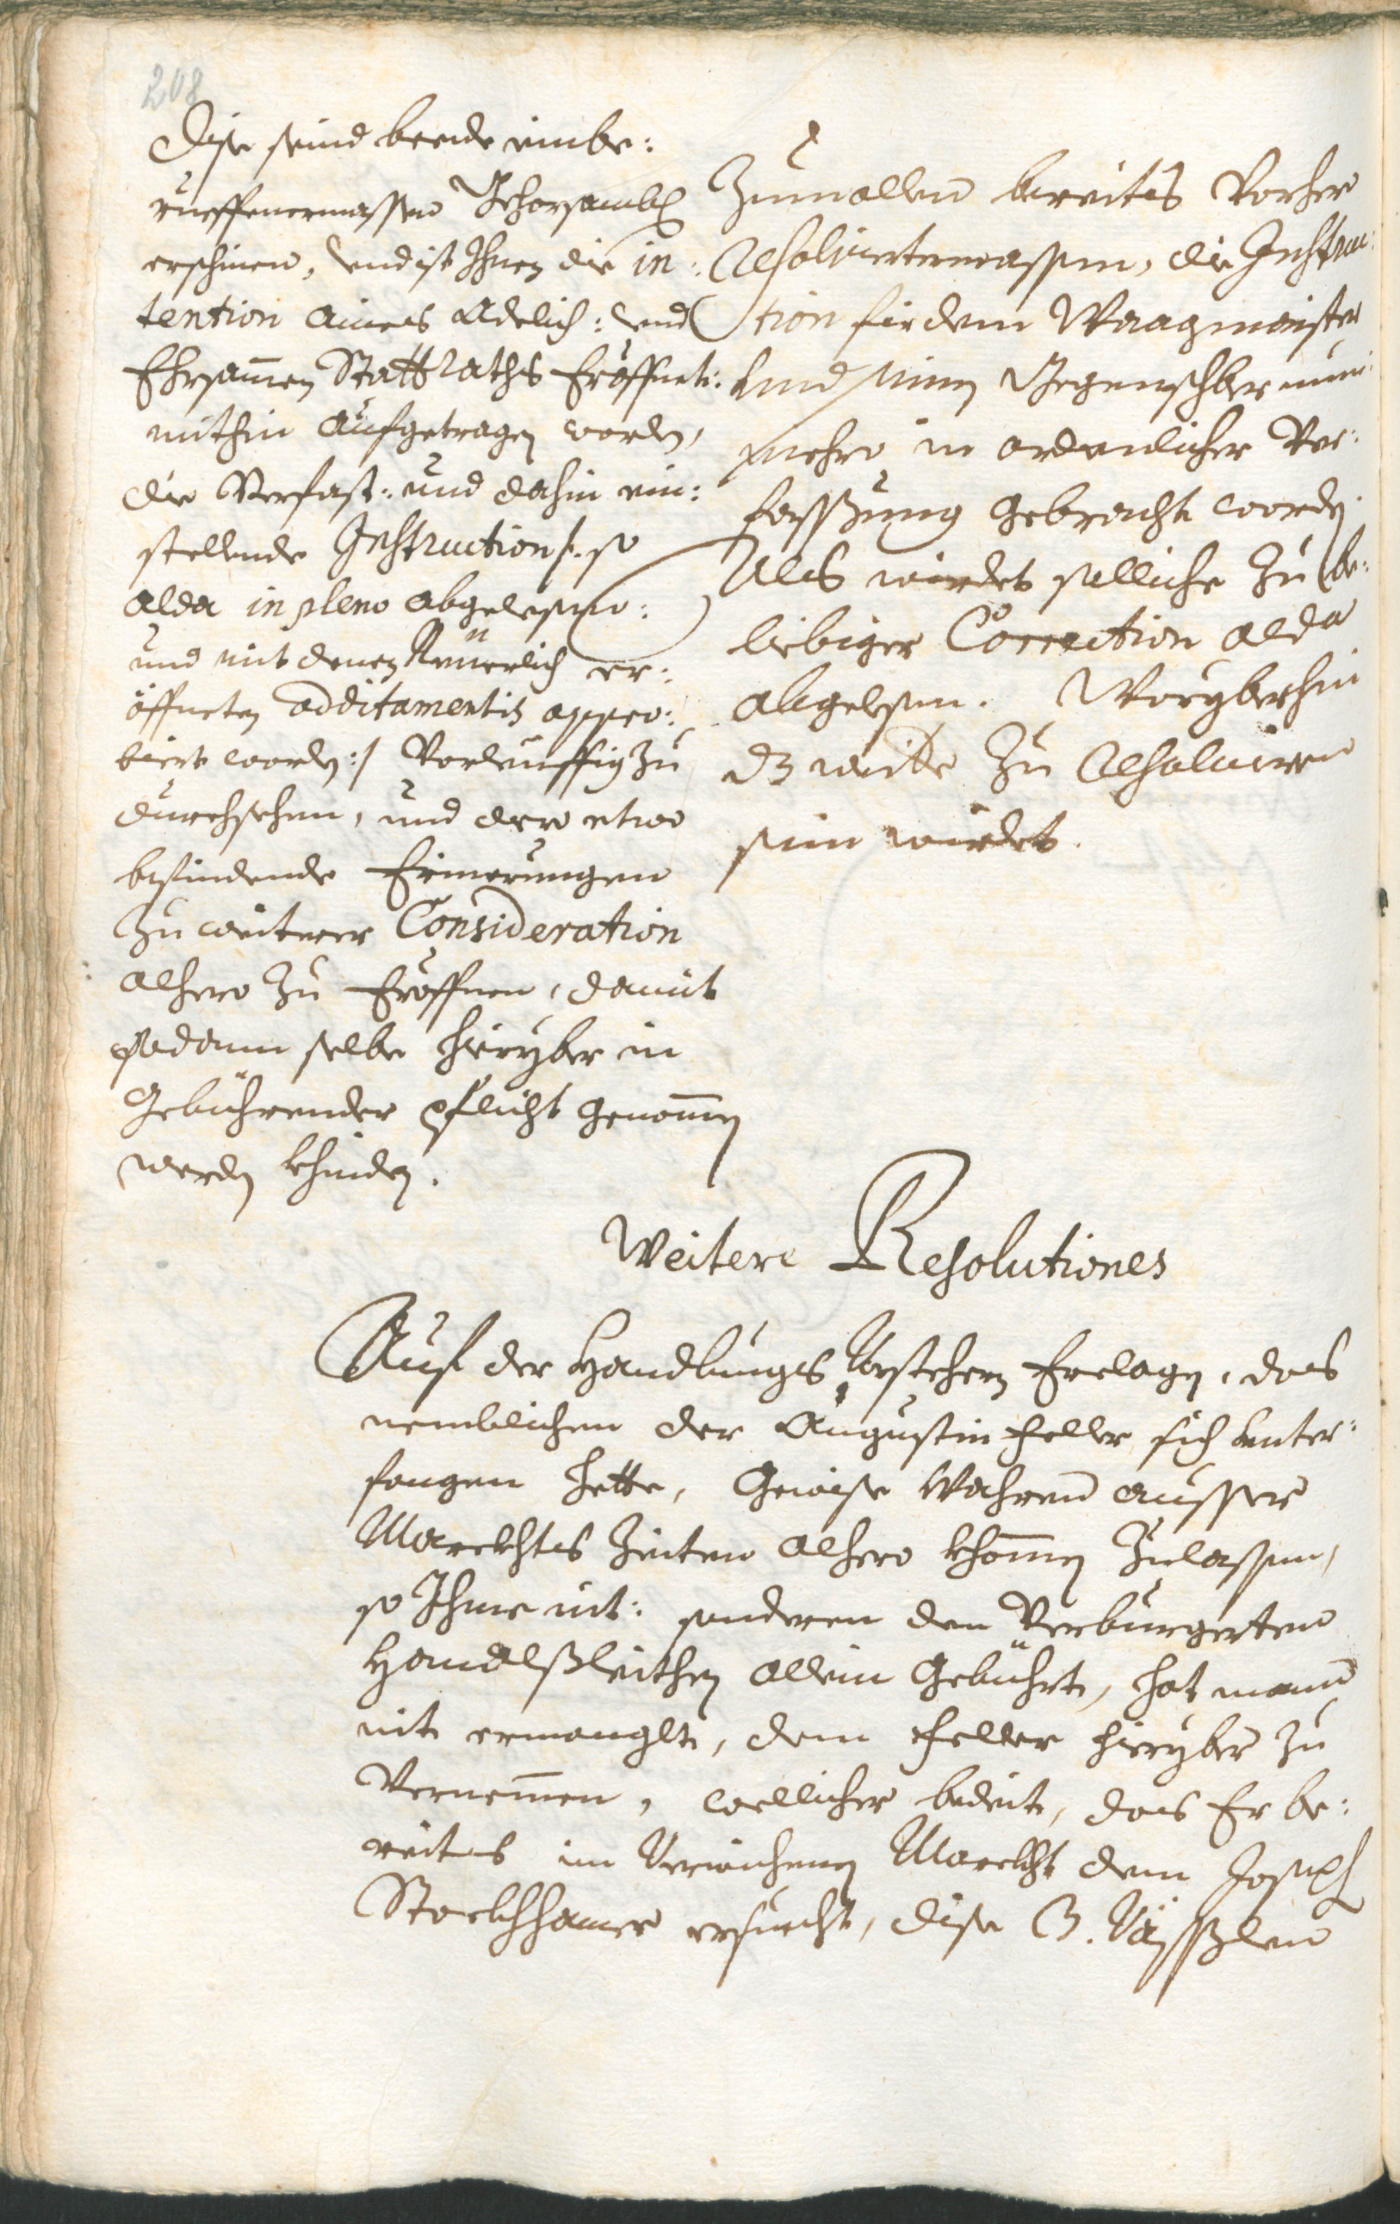 208
Dise seind beede einbe:
rueffenermassen Gehorsambl
erschinen, und ist Ihnen die in:
tention aines Adelich: und
Ehrsamen Stattraths Eröffnet:
mithin aufgetragen worden,
die Verfast: und dahin ein:
stellende Instruction /: so
alda in pleno abgelesen:
und mit denen Neuerlich er:
öffneten additamentis appro:
biert worden :/ Vorleuffig zu
durchsehen, und dero etwo
befindende Erinerungen
zu weiterer Consideration
alhero zu Eröffnen, damit
sodann selbe hieryber in
Gebührender pflicht genomen
werden khinden.
Zumallen bereites Vorher
Resolviertermassen, die Instruc:
tion fir den Waagmaister
und seinen Gegenschber nun:
mehro in ordenlicher Ver:
fassßung gebracht worden.
Als würdet solliche zu be:
liebiger Correction alda
abgelesen. Woryberhin
dz weitte zu Resolvieren
sein würdet.
Weitere Resolutiones
Auf der Handlungs Vorstehern Erclagen, das
nemblichen der Augustin Feller sich unter:
fangen hette, Gewise Wahren ausser
Marckhts Zeiten alhero khomen Zulassen,
so Ihme nit: sonderen den Verburgerten
Handlßleithen allein Gebührt, hat mann
nit ermanglt, dem Feller hieryber zu
Vernemen, wellicher bedeit, das Er be:
reites im Verwichenen Marckht dem Joseph
Stockhhamer ersuecht, dise 3. Vässßlen